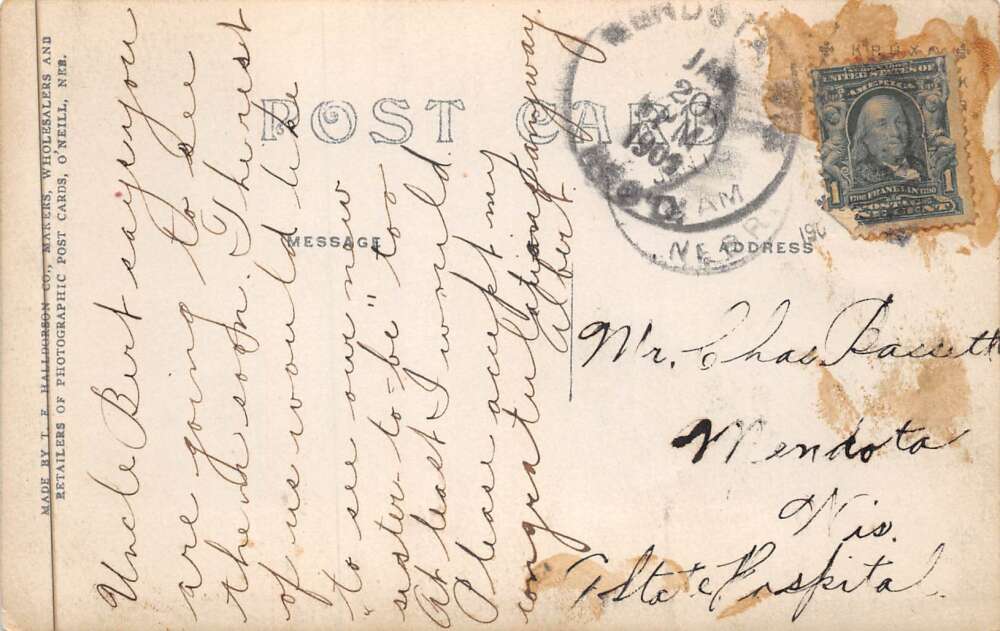 MADE BY T. E. HALLDORSON CO., MAKERS, WHOLESALERS AND
RETAILERS OF PHOTOGRAPHIC POST CARDS, O'NEILL, NEB.
POST CARD
MESSAGE
ADDRESS
Uncle Bert says you
are going to see
them soon. The rest
of us would like
"to see our new
sister-to-be" too
At least I would.
Please accept my
congratulations anyway.
Albert.
JAN
20
M
190
NEBR.
UNITED STATES OF
AMERICA
1
FRANKLIN
1
ONE CENT
190
Mr. Chas. Bassett
Mendota
Wis.
State Hospital